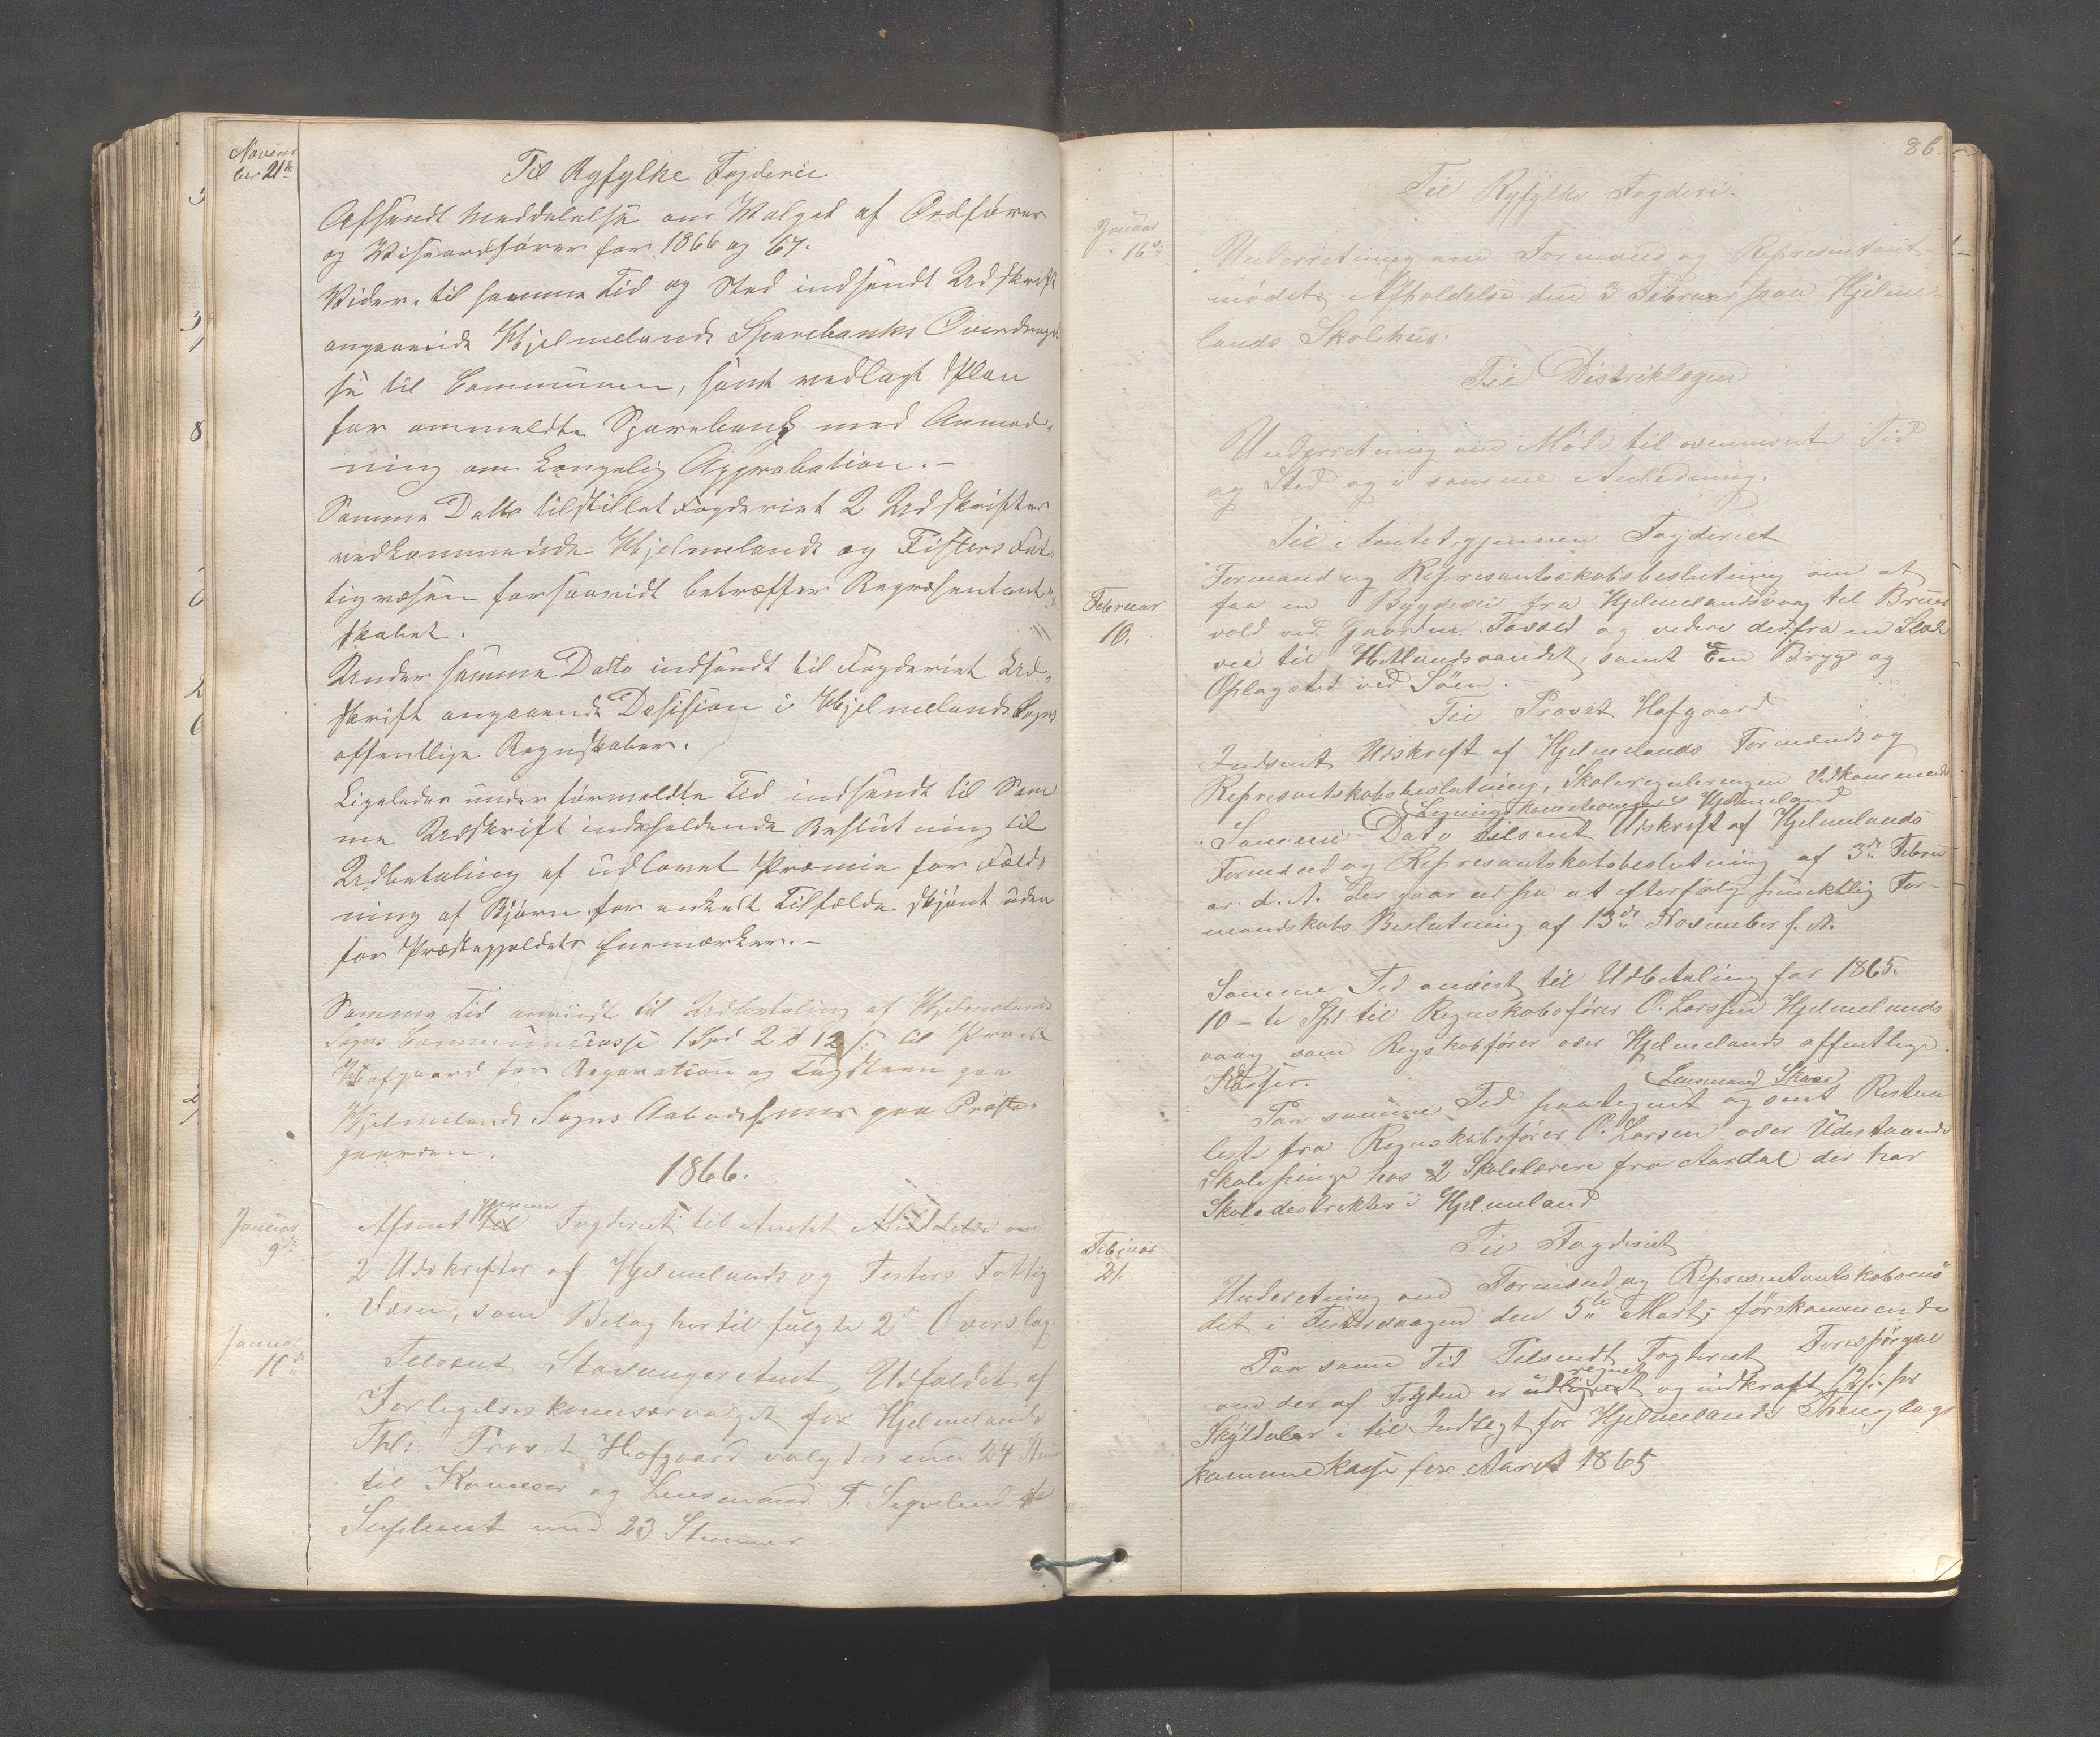 Novem
ber 21de
Til Ryfylke Fogderie
Afsendt Meddelelse om Valget af Ordfører
og Viseordfører for 1866 og 67.
Vider. til samme Tid og Sted indsendt Udskrift
angaaende Hjelmelands Sparebanks Overdragel
se til Communen, samt vedlagt Plan
for ommeldte Sparebank med Anmod,
ning om Kongelig Approbation.-
Samme Datto tilstillet Fogderiet 2 Udskrifter
vedkommende Hjelmelands og Fisters Fat,
tigvæsen forsaavidt betræffer Repræsentant
skabet.
Under samme Datto indsendt til Fogderiet Ud,
skrift angaaende Desision i Hjelmelands Sogns
offentlige Regnskaber.
Ligeledes under førmeldte Tid indsendt til Sam
me Udskrift indeholdende Beslutning til
Udbetaling af udlovet Præmie for Fæld,
ning af Bjørn, for enkelt Tilfælde skjønt uden
for Præstegjeldets Enemærker.-
Samme Tid anviist til Udbetaling af Hjelmelands
Sogns Communecasse 1 Spd 2 12 s: til Provst
Hofgaard for Reparation og Tagsteen paa
Hjelmelands Sogns Aabodshuus paa Præste,
gaarden.
1866.
Januar
9de
Afsent til Fogderiet til Amtet Meddelse om
2 Udskrifter af Hjelmelands og Fisters Fattig
Væsen, som Belag hertil fulgte 2de Overslag.
Januar
11te
Telsent Stavanger Amt, Udfaldet af
Forligelseskomisærvalget for Hjelmelands
Thl: Provst Hofgaard valgtes med 24
til Komesær og Lensmand T. Sigveland
Supleant med 23 Stemmer
86.
Til Ryfylke Fogderi.
Januar
16de
Underretning om Formand og Representant
mødets Afholdelse den 3 Februar paa Hjelme
lands Skolehus.
Til Distriktlægen
Underretning om Møde til ovennevnte Tid
og Sted og i samme Anledning.
Til Amtet, gjennem Fogderiet
Februar
10.
Formand og Represantskabsbeslutning om at
faa en Bygdevei fra Hjelmelandsvaag til
vold ved Gaarden Tøvold og videre derfra en
vei til Hetlandsvandet, samt En Brygge og
Oplagsted ved Søen.
Til Provst Hofgaard
Indsent Utskrift af Hjelmelands Formands og
Represantskabsbeslutning, Skoleregulerengen Vedkommende
Hjelmeland
Samme Dato tilsent Utskrift af Hjelmelands
Formand og Represantskabsbeslutning af 3de Febru
ar d. A. der gaar ud paa at efterfølge punktlig For-
mandskabs Beslutning af 13de November f. A.
Samme Tid anvist til Udbetaling for 1865.
10- ti Spd til Regnskabsfører O. Larsen Hjelmelands
vaag som Regskabfører over Hjelmelands offentlige
Kasser.
Lensmand Skaar
Paa samme Tid paategnet og sent Restan
leste fra Regnskabsfører O. Larsen over Udestaaende
Skolepenge hos 2 Skolelærere fra Aardal der har
Skoledestrikter i Hjelmeland
Til Fogderiet
Februar
21.
Underetning om Formand og Representantskabsmø
det i Fistervaagen den 5te Marts førskommende
Paa samme Tid Tilsendt Fogderiet Forespørgsel
om der af Fogden er udlignet og indkræft 12 s: pr
Skylddaler i til Indtegt for Hjelmelands Thinglags
kommunekasse for Aaret 1865